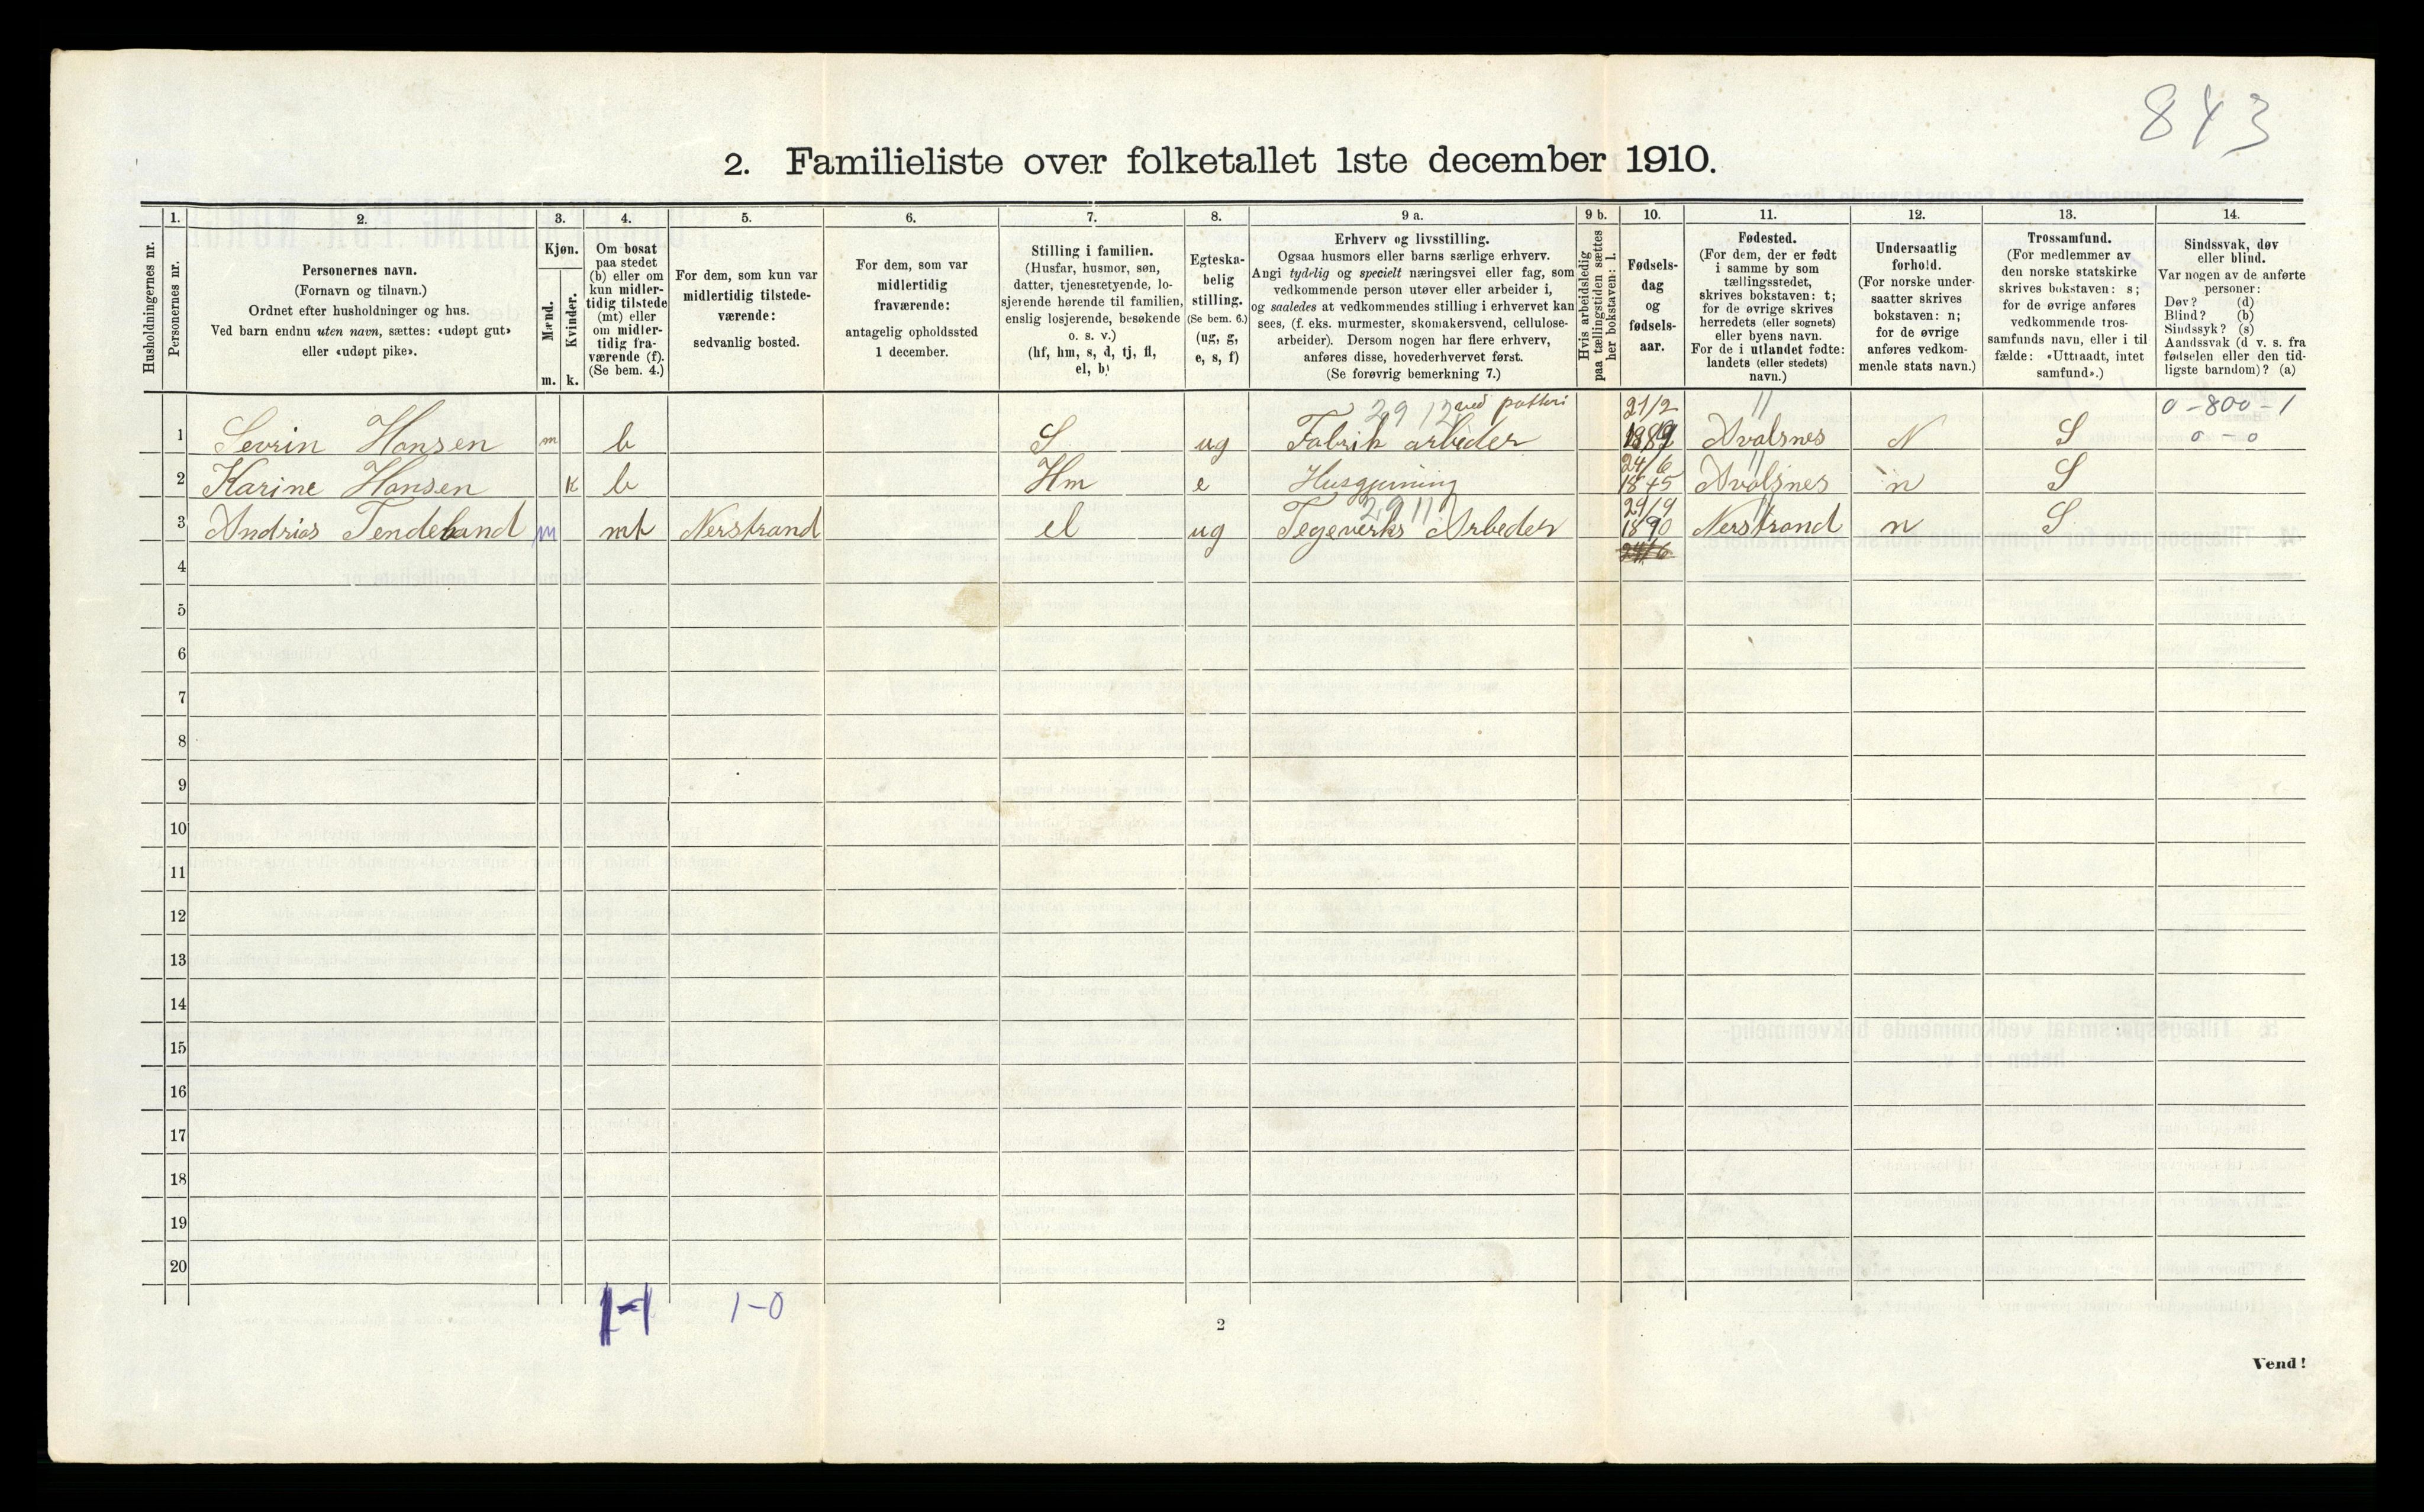 843
2. Familieliste over folketallet 1ste december 1910.
Husholdningernes nr.
1.
Personernes nr.
2.
Personernes navn.
(Fornavn og tilnavn.)
Ordnet efter husholdninger og hus.
Ved barn endnu uten navn, sættes: «udøpt gut»
eller «udøpt pike».
3.
Kjøn.
Mænd.
Kvinder.
m. k.
4.
Om bosat
paa stedet
(b) eller om
kun midler-
tidig tilstede
(mt) eller
om midler-
tidig fra-
værende (f).
(Se bem. 4.)
5.
For dem, som kun var
midlertidig tilstede-
værende:
sedvanlig bosted.
6.
For dem, som var
midlertidig
fraværende:
antagelig opholdssted
1 december.
7.
Stilling i familien.
(Husfar, husmor, søn,
datter, tjenestetyende, lo-
sjerende hørende til familien,
enslig losjerende, besøkende
o. s. v.)
(hf, hm, s, d, tj, fl,
el, b)
8.
Egteska-
belig
stilling.
(Se bem. 6.)
(ug, g,
e, s, f)
9 a.
Erhverv og livsstilling.
Ogsaa husmors eller barns særlige erhverv.
Angi tydelig og specielt næringsvei eller fag, som
vedkommende person utøver eller arbeider i,
og saaledes at vedkommendes stilling i erhvervet kan
sees, (f. eks. murmester, skomakersvend, cellulose-
arbeider). Dersom nogen har flere erhverv,
anføres disse, hovederhvervet først.
(Se forøvrig bemerkning 7.)
9 b.
Hvis arbeidsledig
paa tællingstiden sættes
her bokstaven: l.
10.
Fødsels-
dag
og
fødsels-
aar.
11.
Fødested.
(For dem, der er født
i samme by som
tællingsstedet,
skrives bokstaven: t;
for de øvrige skrives
herredets (eller sognets)
eller byens navn.
For de i utlandet fødte:
landets (eller stedets)
navn.)
12.
Undersaatlig
forhold.
(For norske under-
saatter skrives
bokstaven: n;
for de øvrige
anføres vedkom-
mende stats navn.)
13.
Trossamfund.
(For medlemmer av
den norske statskirke
skrives bokstaven: s;
for de øvrige anføres
vedkommende tros-
samfunds navn, eller i til
fælde: «Uttraadt, intet
samfund».)
14.
Sindssvak, døv
eller blind.
Var nogen av de anførte
personer:
Døv? (d)
Blind? (b)
Sindssyk? (s)
Aandssvak (d. v. s. fra
fødselen eller den tid-
ligste barndom)? (a)
2912 ved potteri 21/2 0-800-1
1 Sevrin Hansen m b S ug Fabrik arbeder 1889 Avalsnes N S 0-0
24/6
2 Karine Hansen K b Hm e Husgjerning 1845 Avalsnes n S
2911 24/4
3 Andrias Tendeland m mt Nerstrand el ug Tegeverks Arbeder 1890 Nerstrand n S
24/6
4
5
6
7
8
9
10
11
12
13
14
15
16
17
18
19
20
1-1 1-0
2
Vend!